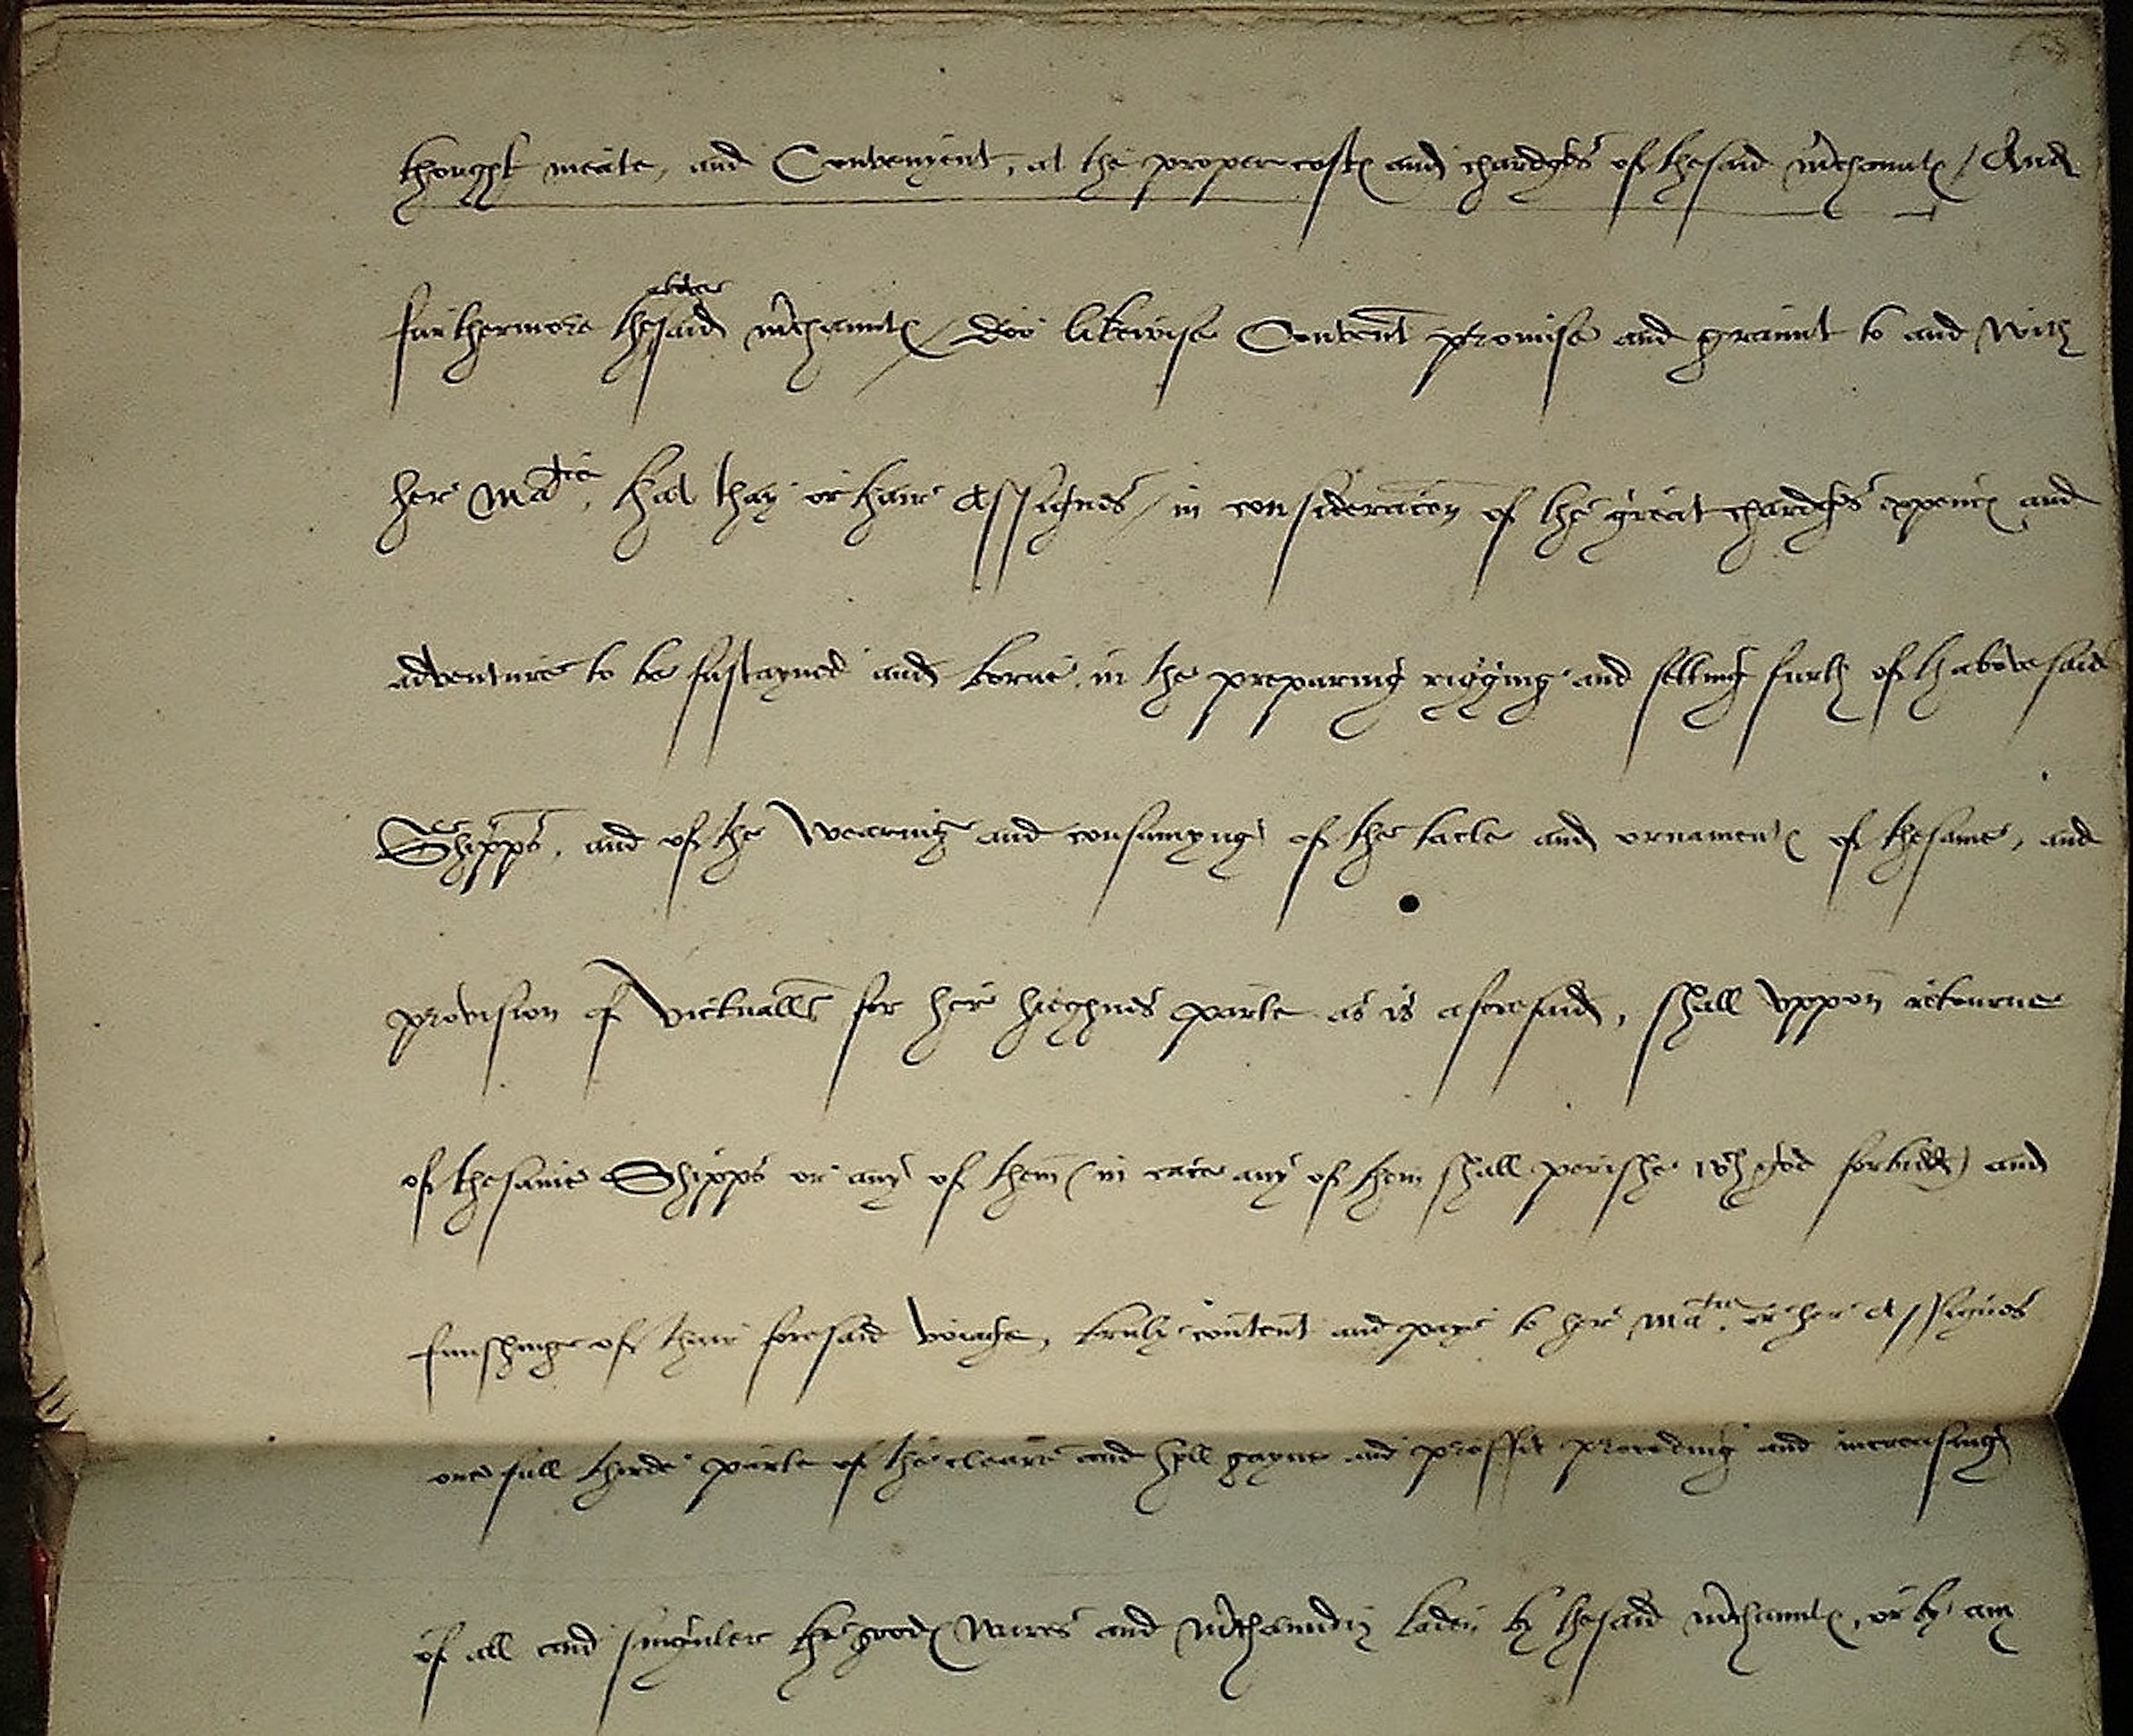 thought meate, and Convenyent, at the proper costes and chardges of thesaid mrchauntes / And
furthermore thesaid above mrchauntes / Doo likewise Covennt promise and graunt to and with
her Matie, that thay or thair Assignes / in consideracon of the great chardges expences and
adventure to be susteyned and borne in the preparing rigging and setting furth of thabovesaid
Shipps, and of the Wearing and consumyng of the tacle and ornamentes of thesame, and
provision of Victualls for her hieghnes parte as is aforesaid, shall uppon retourne
of thesame Shipps or any of them (in case any of them shall perishe wch god forbidd) and
finishinge of thair foresaid voiage, truly content and paye to her Matie. or her Assignes
one full thirde parte of the cleare and holl gayne and proffit proceding and increasing
of all and singuler the goodes Wares and mrchaundiz laden by thesaid mrchauntes, or by any